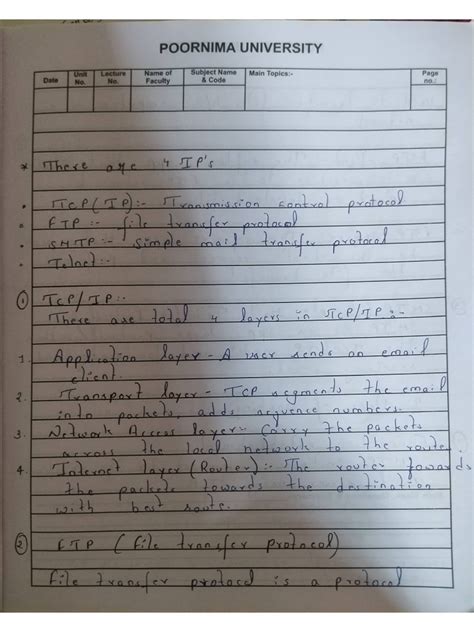 POORNIMA UNIVERSITY
Date Unit No. Lecture No. Name of Faculty Subject Name & Code Main Topics:- Page no.:
* There are 4 IP's
• TCP(IP):- Transmission control protocol
• FTP :- file transfer protocol
• SMTP:- Simple mail transfer protocol
• Telnet:-
① TCP/IP:-
There are total 4 layers in TCP/IP:-
1. Application layer - A user sends an email
client.
2. Transport layer - TCP segments the email
into packets, adds sequence numbers.
3. Network Access layer:- Carry the packets
across the local network to the router
4. Internet layer (Router):- The router towards
the packets towards the destination
with best route.
② FTP (File transfer protocol)
File transfer protocol is a protocol